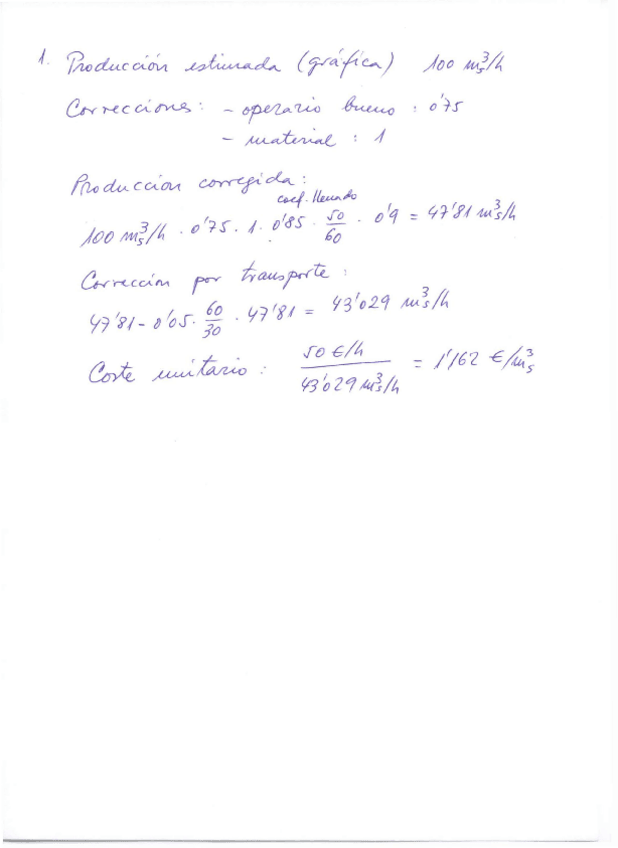 1. Producción estimada (gráfica) 100 m³s/h
Correcciones: - operario bueno : 0'75
- material : 1
Produccion corregida:
coef. llenado
100 m³s/h · 0'75 · 1 · 0'85 · 50/60 · 0'9 = 47'81 m³s/h
Corrección por transporte :
47'81 - 0'05 · 60/30 · 47'81 = 43'029 m³s/h
Coste unitario : 50 €/h / 43'029 m³s/h = 1'162 €/m³s